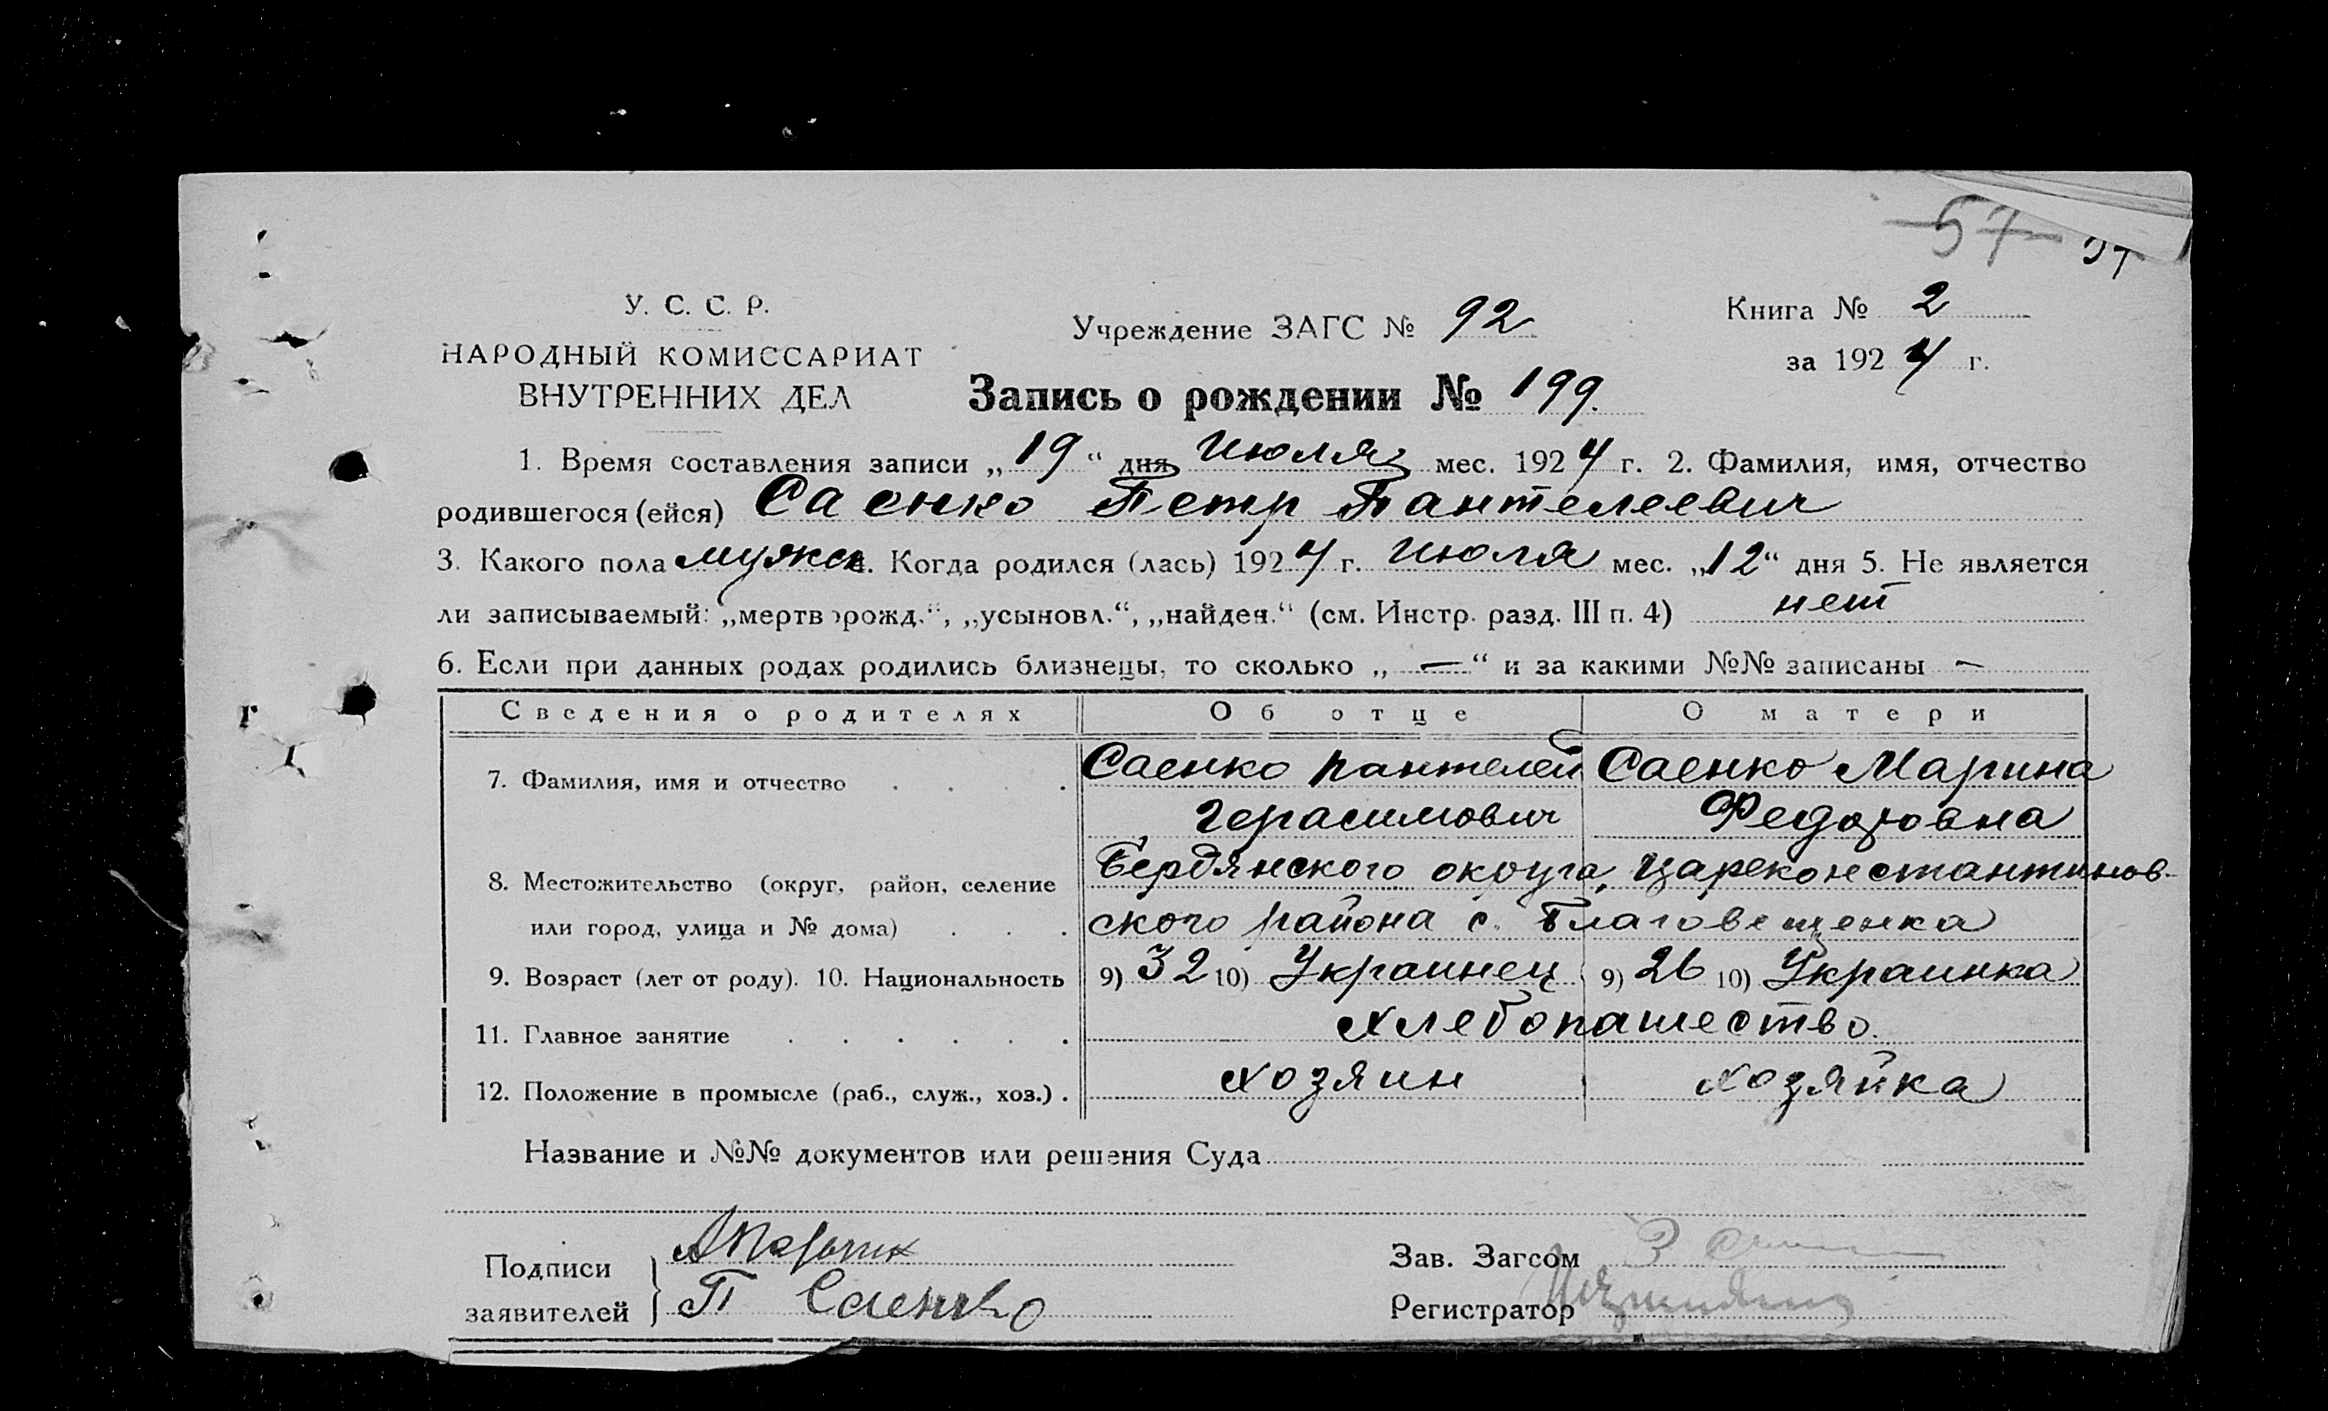 57
У. С. С. Р.
НАРОДНЫЙ КОМИССАРИАТ
ВНУТРЕННИХ ДЕЛ
Учреждение ЗАГС № 92
Книга № 2
за 1924 г.
Запись о рождении № 199.
1. Время составления записи „19“ дня Июля мес. 1924 г. 2. Фамилия, имя, отчество
родившегося (ейся) Саенко Петр Пантелеевич
3. Какого пола мужск. Когда родился (лась) 1924 г. Июля мес. „12“ дня 5. Не является
ли записываемый: „мертворожд.“, „усыновл.“, „найден.“ (см. Инстр. разд. III п. 4) нет
6. Если при данных родах родились близнецы, то сколько „—“ и за какими №№ записаны —
Сведения о родителях Об отце О матери
7. Фамилия, имя и отчество . . . . Саенко Пантелей Саенко Марина
Герасимович Федоровна
8. Местожительство (округ, район, селение Бердянского округа, Цареконстантинов-
или город, улица и № дома) . . . ского района с. Благовещенка
9. Возраст (лет от роду). 10. Национальность 9) 32 10) Украинец 9) 26 10) Украинка
11. Главное занятие . . . . . . хлебопашество.
12. Положение в промысле (раб., служ., хоз.) . хозяин хозяйка
Название и №№ документов или решения Суда
Подписи
заявителей
П Саенко
Зав. Загсом
Регистратор